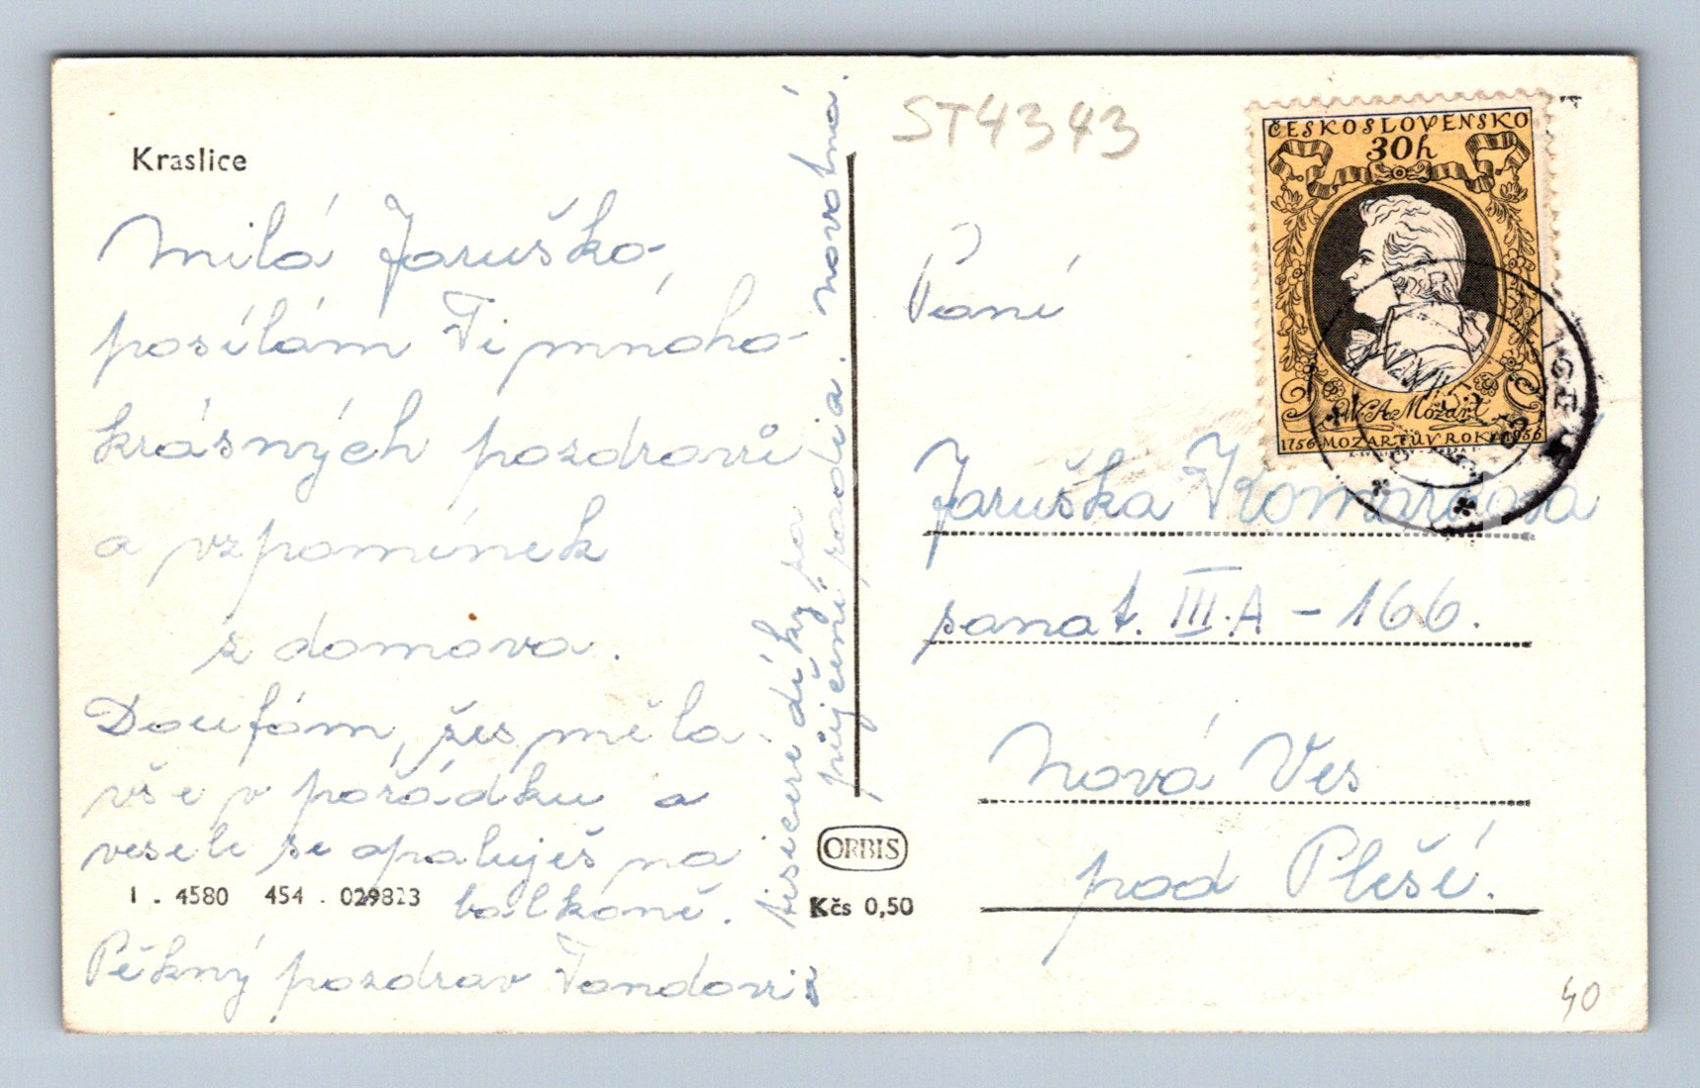 Kraslice
Milá Jaruško,
posílám Ti mnoho
krásných pozdravů
a vzpomínek
z domova.
Doufám, žes měla
vše v pořádku a
vesele se opaluješ na
balkoně.
1 . 4580 454 . 029823
Pěkný pozdrav
tisíceré díky za
půjčení radia. Novotná.
ORBIS
Kčs 0,50
ST4343
ČESKOSLOVENSKO
30h
W. A. Mozart
1756 MOZARTŮV ROK 1956
Paní
Jaruška
sanat. III.A - 166.
Nová Ves
pod Pleší.
40